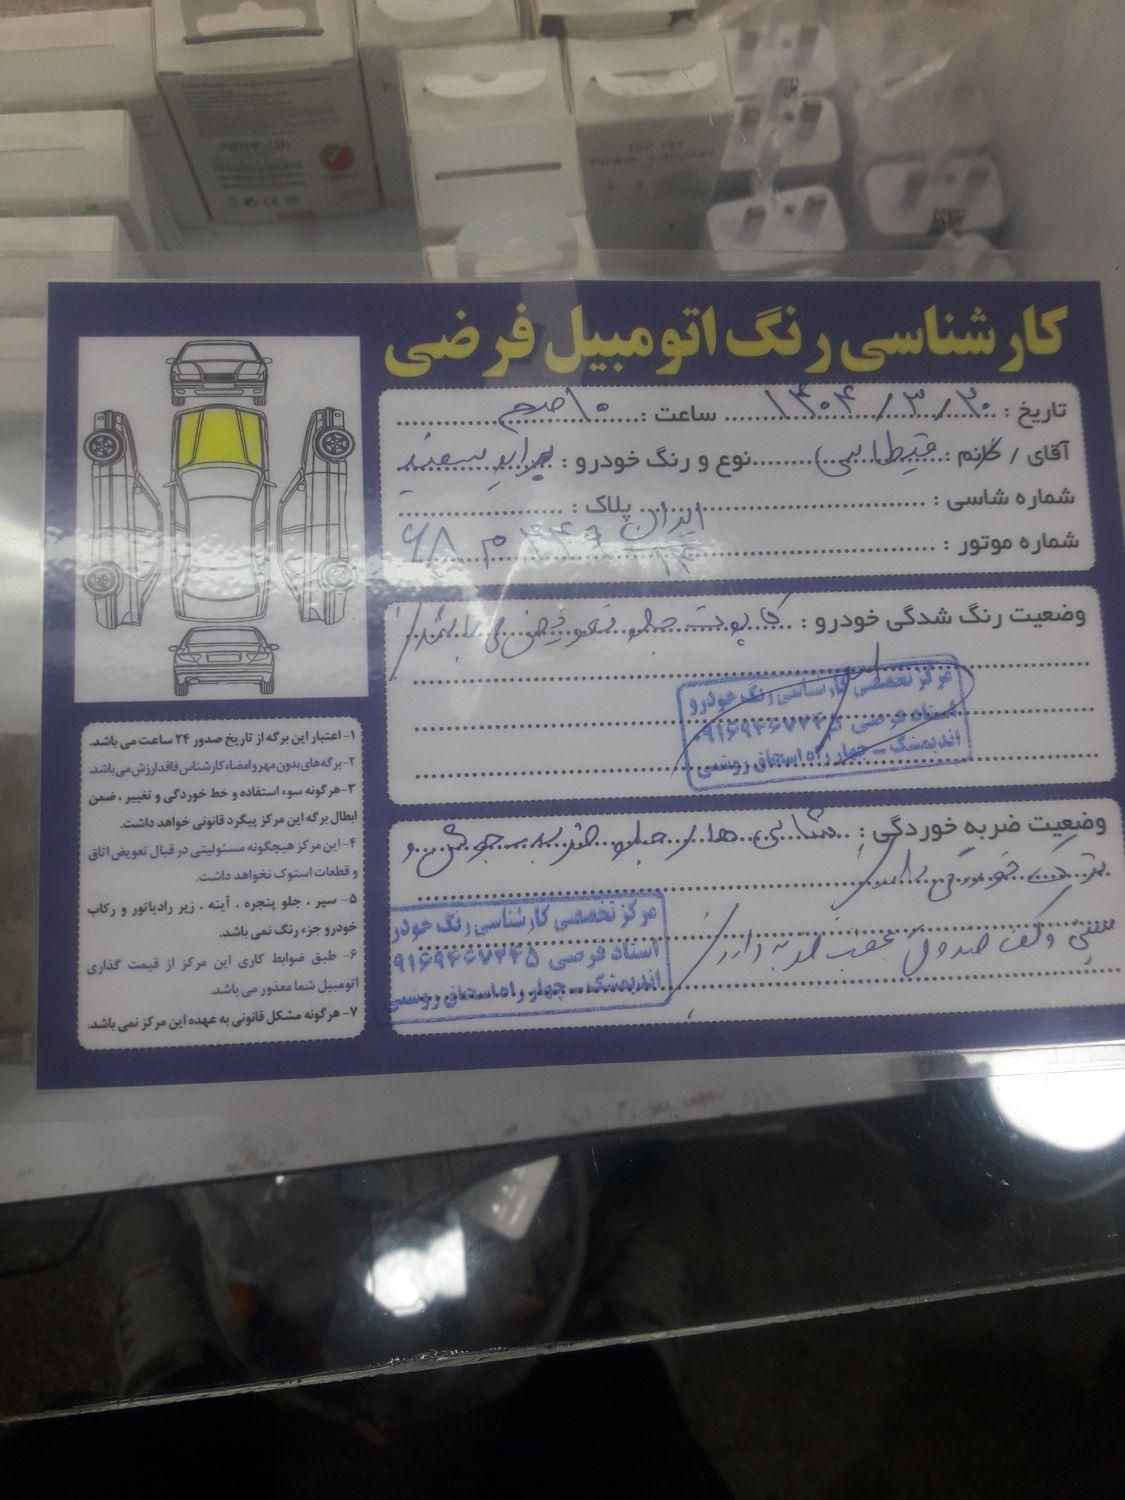 Power Adapter
کارشناسی رنگ اتومبیل فرضی
تاریخ : ۱۴۰۴/۳/۲۰ ساعت : ۱۰ صبح
آقای / خانم : قیطاسی نوع و رنگ خودرو : پراید سفید
شماره شاسی : پلاک : ایران
شماره موتور :
وضعیت رنگ شدگی خودرو : کاپوت جلو تعویض می باشد
مرکز تخصصی کارشناسی رنگ خودرو
استاد فرضی ۰۹۱۶۹۴۶۷۲۴۵
اندیمشک - چهار راه اسحاق روشنی
وضعیت ضربه خوردگی : جلو ضربه جوش و
سینی و کف صندوق عقب ضربه دارد
مرکز تخصصی کارشناسی رنگ خودر
استاد فرضی ۹۱۶۹۴۶۷۲۴۵
اندیمشک - چهار راه اسحاق روشنی
۱- اعتبار این برگه از تاریخ صدور ۲۴ ساعت می باشد.
۲- برگه های بدون مهر و امضاء کارشناس فاقد ارزش می باشد.
۳- هرگونه سوء استفاده و خط خوردگی و تغییر ، ضمن
ابطال برگه این مرکز پیگرد قانونی خواهد داشت.
۴- این مرکز هیچگونه مسئولیتی در قبال تعویض اتاق
و قطعات استوک نخواهد داشت.
۵- سپر ، جلو پنجره ، آینه ، زیر رادیاتور و رکاب
خودرو جزء رنگ نمی باشد.
۶- طبق ضوابط کاری این مرکز از قیمت گذاری
اتومبیل شما معذور می باشد.
۷- هرگونه مشکل قانونی به عهده این مرکز نمی باشد.